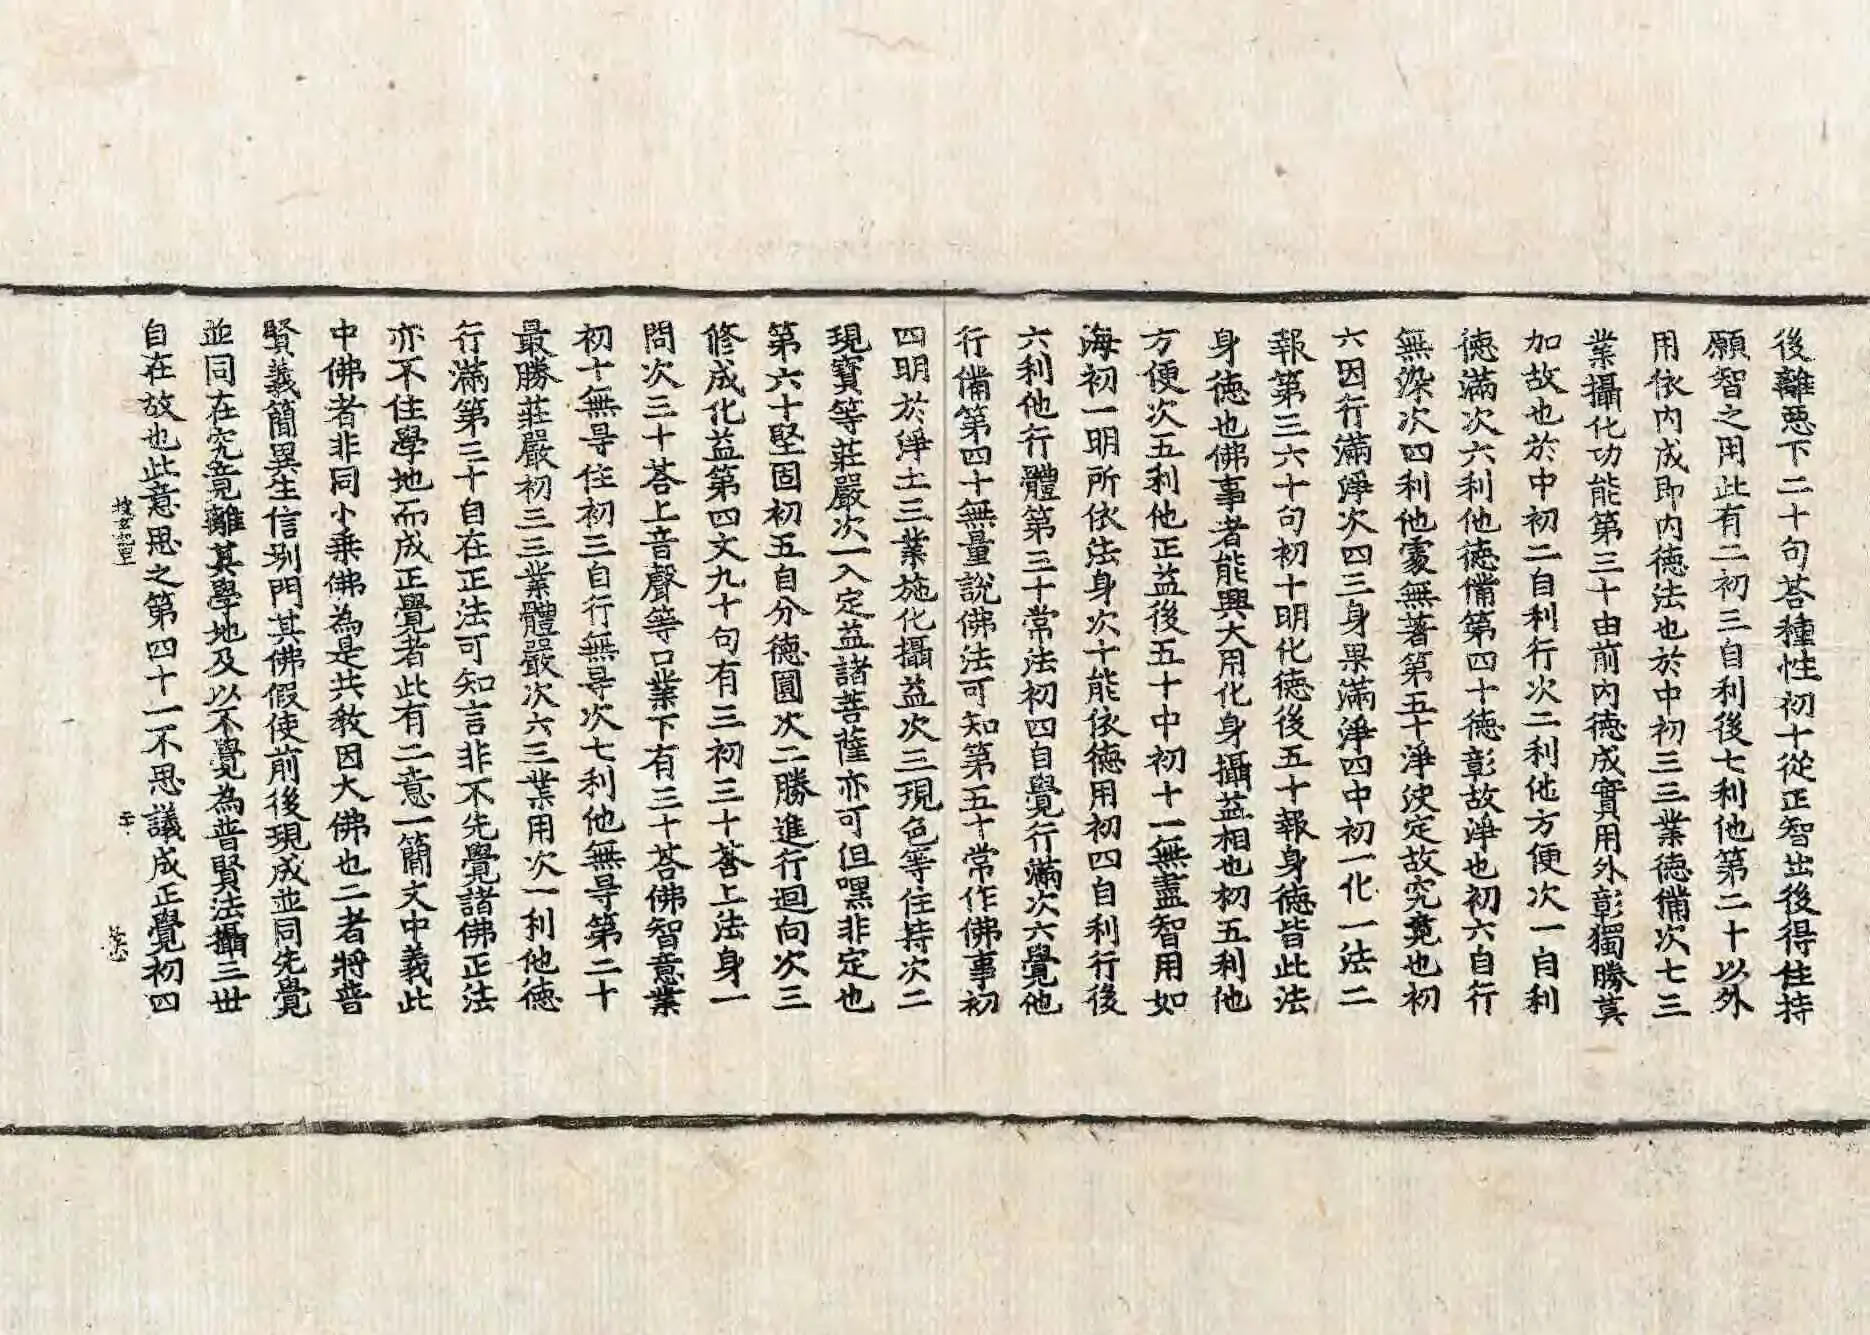 後離惡下二十句荅種性初十從正智出後得住持
願智之用此有二初三自利後七利他第二十以外
用依內成即內德法也於中初三三業德備次七三
業攝化功能第三十由前內德成實用外彰獨勝莫
加故也於中初二自利行次二利他方便次一自利
德滿次六利他德備第四十德彰故淨也初六自行
無染次四利他處無著第五十淨決定故究竟也初
六因行滿淨次四三身果滿淨四中初一化一法二
報第三六十句初十明化德後五十報身德皆此法
身德也佛事者能興大用化身攝益相也初五利他
方便次五利他正益後五十中初十一無盡智用如
海初一明所依法身次十能依德用初四自利行後
六利他行體第三十常法初四自覺行滿次六覺他
行備第四十無量說佛法可知第五十常作佛事初
四明於淨土三業施化攝益次三現色等住持次二
現寶等莊嚴次一入定益諸菩薩亦可但嘿非定也
第六十堅固初五自分德圓次二勝進行迴向次三
修成化益第四文九十句有三初三十荅上法身一
問次三十荅上音聲等口業下有三十荅佛智意業
初十無㝵住初三自行無㝵次七利他無㝵第二十
最勝莊嚴初三三業體嚴次六三業用次一利他德
行滿第三十自在正法可知言非不先覺諸佛正法
亦不住學地而成正覺者此有二意一簡文中義此
中佛者非同小乘佛為是共教因大佛也二者將普
賢義簡異生信別門其佛假使前後現成並同先覺
並同在究竟離其學地及以不覺為普賢法攝三世
自在故也此意思之第四十一不思議成正覺初四
搜玄記里